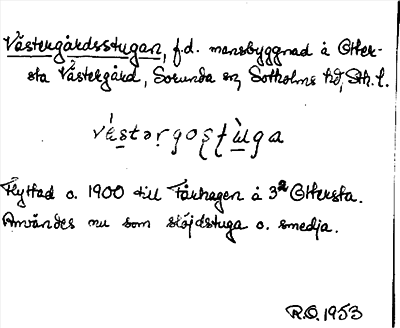 Västergårdsstugan, f.d. mansbyggnad å Otter-
sta Västergård, Sorunda sn, Sotholms hd, Sth. l.
véstərgoʂʈùga
Flyttad o. 1900 till Fårhagen å 3ª Ottersta.
Användes nu som slöjdstuga o. smedja.
R.O. 1953